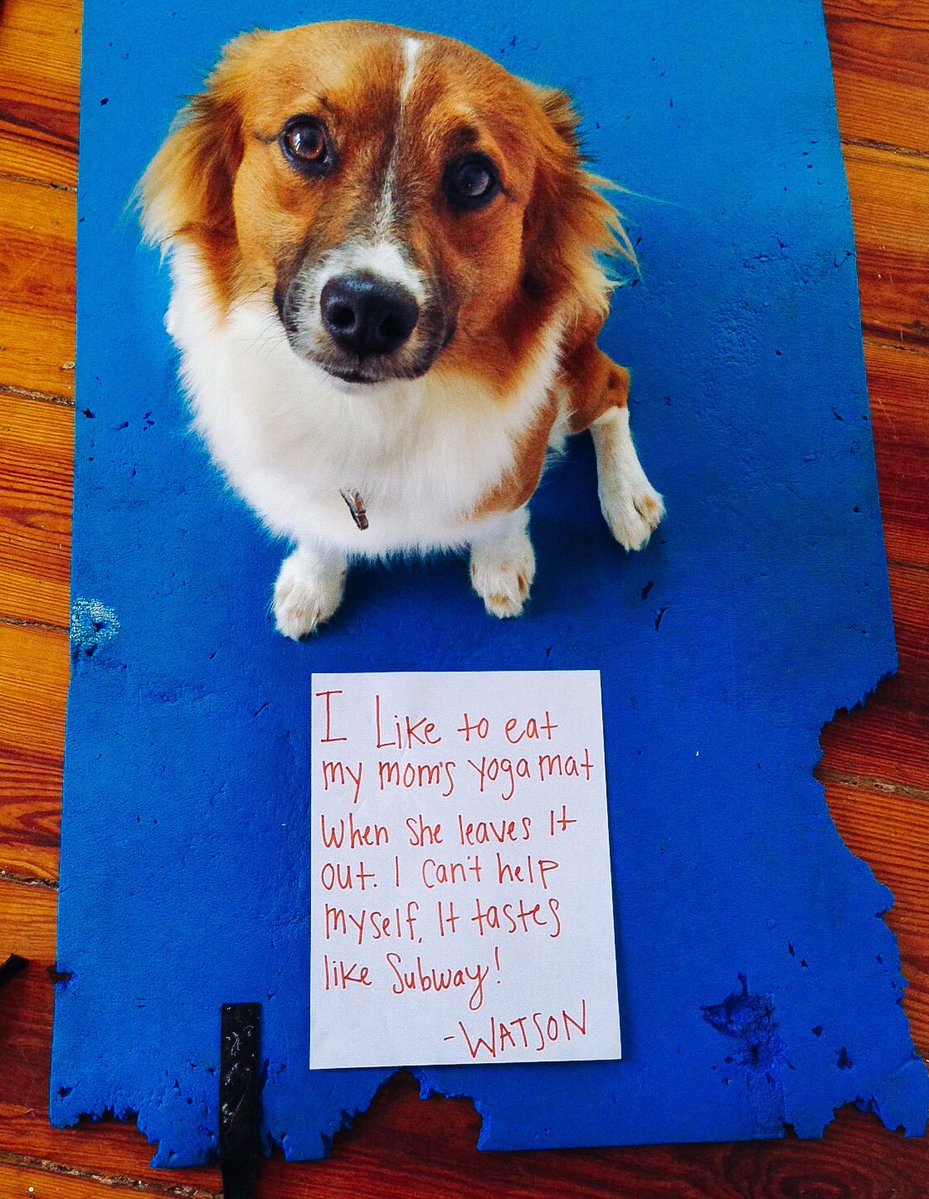 I Like to eat
my mom's yoga mat
When she leaves It
out. I can't help
myself, It tastes
like Subway!
-WATSON